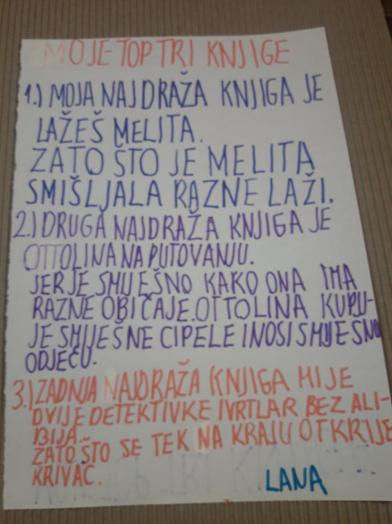 MOJE TOP TRI KNJIGE
1.) MOJA NAJDRAŽA KNJIGA JE
LAŽEŠ MELITA.
ZATO ŠTO JE MELITA
SMIŠLJALA RAZNE LAŽI.
2.) DRUGA NAJDRAŽA KNJIGA JE
OTTOLINA NA PUTOVANJU.
JER JE SMIJEŠNO KAKO ONA IMA
RAZNE OBIČAJE. OTTOLINA KUPU-
JE SMIJEŠNE CIPELE I NOSI SMIJEŠNU
ODJEĆU.
3.) ZADNJA NAJDRAŽA KNJIGA MI JE
DVIJE DETEKTIVKE I VRTLAR BEZ ALI-
BIJA.
ZATO ŠTO SE TEK NA KRAJU OTKRIJE
KRIVAC.
LANA